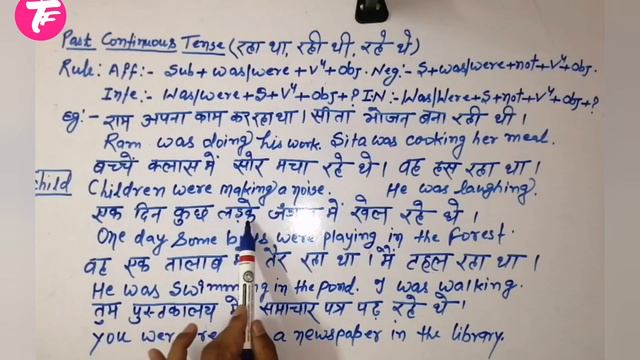 TF
Past Continuous Tense (रहा था, रही थी, रहे थे)
Rule: Aff:- Sub + was/were + V⁴ + obj. Neg:- S + was/were + not + V⁴ + obj.
Inte:- Was/were + S + V⁴ + obj + ? I.N:- Was/Were + S + not + V⁴ + obj + ?
eg:- राम अपना काम कर रहा था। सीता भोजन बना रही थी।
Ram was doing his work. Sita was cooking her meal.
बच्चें क्लास में सोर मचा रहे थे। वह हस रहा था।
Child Children were making a noise. He was laughing.
एक दिन कुछ लड़के में खेल रहे थे।
One day some boys were playing in the forest.
वह एक तालाब तैर रहा था। मैं टहल रहा था।
He was swimming in the pond. I was walking.
तुम पुस्तकालय समाचार पत्र पढ़ रहे थे।
You were a newspaper in the library.